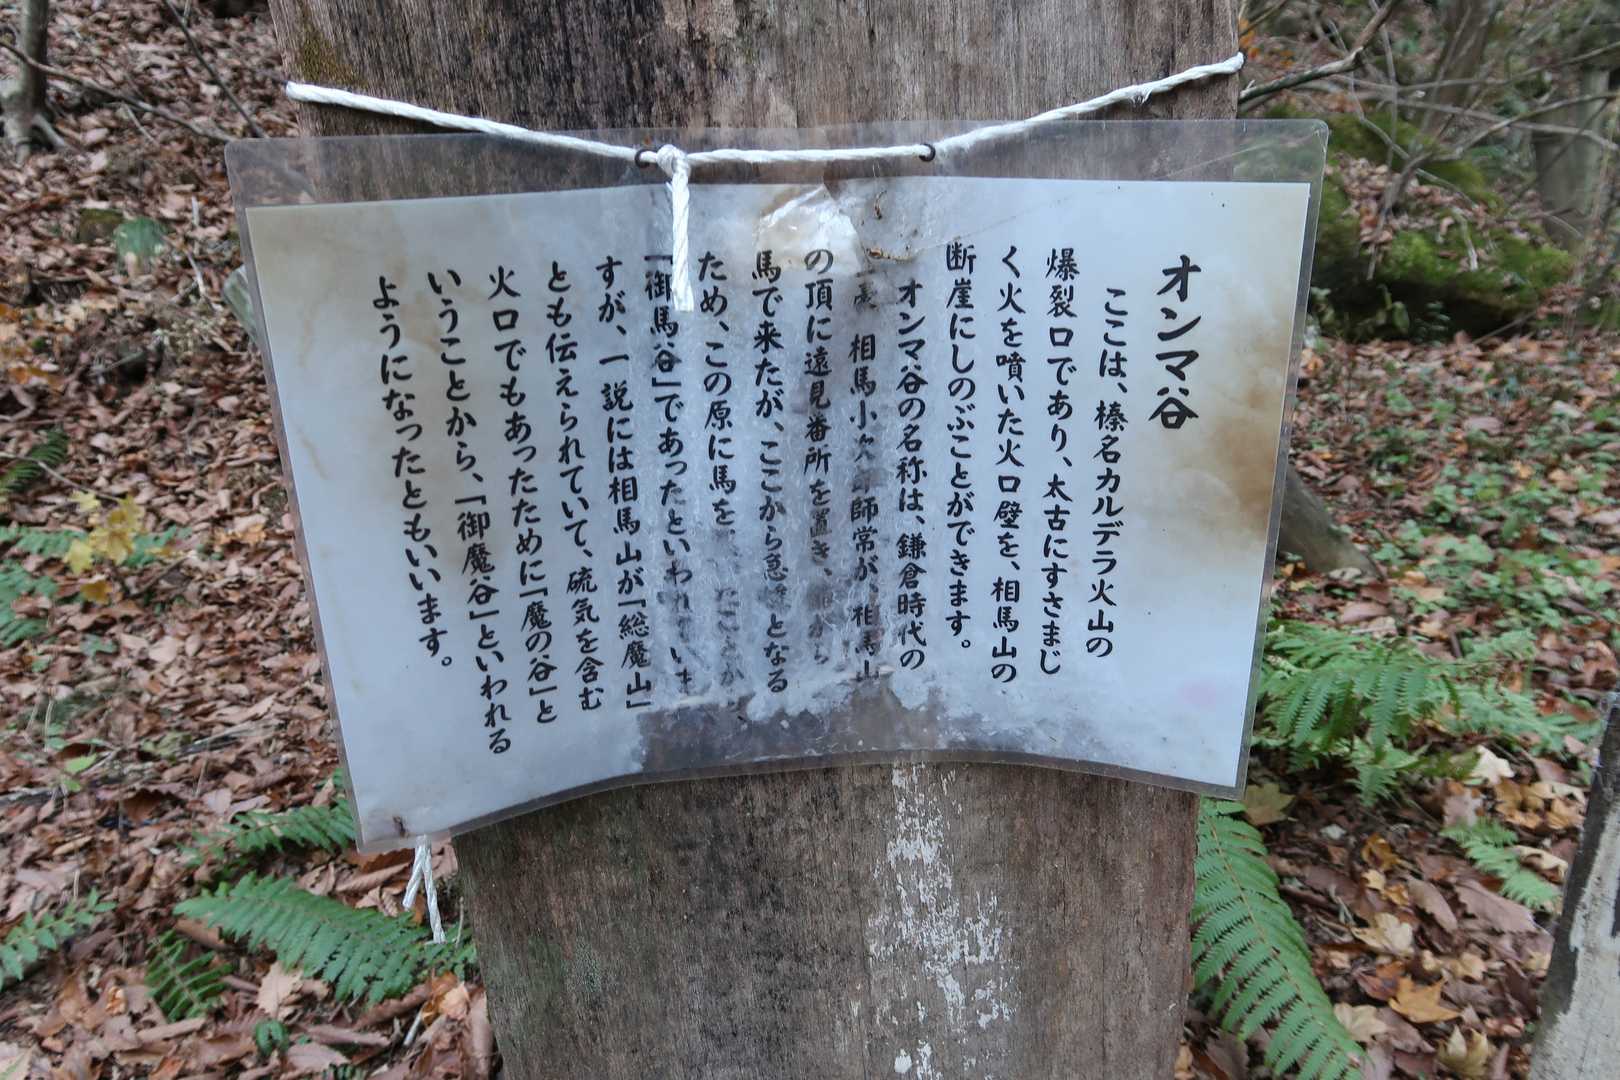 オンマ谷
ここは、榛名カルデラ火山の
爆裂口であり、太古にすさまじ
く火を噴いた火口壁を、相馬山の
断崖にしのぶことができます。
オンマ谷の名称は、鎌倉時代の
相馬小次郎師常が、相馬山
の頂に遠見番所を置き、から
馬で来たが、ここから急となる
ため、この原に馬を
「御馬谷」であったといわれていま
すが、一説には相馬山が「総魔山」
とも伝えられていて、硫気を含む
火口でもあったために「魔の谷」と
いうことから、「御魔谷」といわれる
ようになったともいいます。